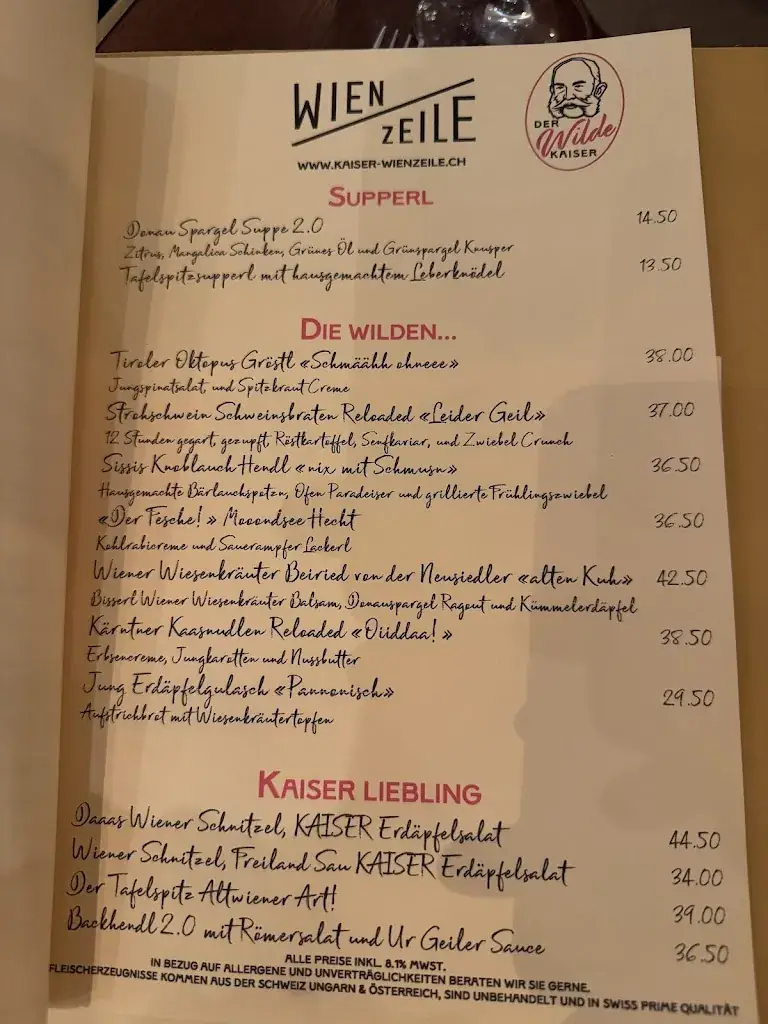 WIEN
ZEILE
DER
Wilde
KAISER
WWW.KAISER-WIENZEILE.CH
SUPPERL
Donau Spargel Suppe 2.0 14.50
Zitrus, Mangalica Schinken, Grünes Öl und Grünspargel Knusper
Tafelspitzsupperl mit hausgemachtem Leberknödel 13.50
DIE WILDEN...
Tiroler Oktopus Gröstl «Schmäähh ohneee» 38.00
Jungspinatsalat, und Spitzkraut Creme
Strohschwein Schweinsbraten Reloaded «Leider Geil» 37.00
12 Stunden gegart, gezupft, Röstkartoffel, Senfkaviar, und Zwiebel Crunch
Sissis Knoblauch Hendl «nix mit Schmusn» 36.50
Hausgemachte Bärlauchspatzn, Ofen Paradeiser und grillierte Frühlingszwiebel
«Der Fesche!» Mooondsee Hecht 36.50
Kohlrabicreme und Sauerampfer Lackerl
Wiener Wiesenkräuter Beiried von der Neusiedler «alten Kuh» 42.50
Bisserl Wiener Wiesenkräuter Balsam, Donauspargel Ragout und Kümmelerdäpfel
Kärntner Kaasnudlen Reloaded «Oiiddaa!» 38.50
Erbsencreme, Jungkarotten und Nussbutter
Jung Erdäpfelgulasch «Pannonisch» 29.50
Aufstrichbrot mit Wiesenkräutertopfen
KAISER LIEBLING
Daaas Wiener Schnitzel, KAISER Erdäpfelsalat 44.50
Wiener Schnitzel, Freiland Sau KAISER Erdäpfelsalat 34.00
Der Tafelspitz Altwiener Art! 39.00
Backhendl 2.0 mit Römersalat und Ur Geiler Sauce 36.50
ALLE PREISE INKL. 8.1% MWST.
IN BEZUG AUF ALLERGENE UND UNVERTRÄGLICHKEITEN BERATEN WIR SIE GERNE.
FLEISCHERZEUGNISSE KOMMEN AUS DER SCHWEIZ UNGARN & ÖSTERREICH, SIND UNBEHANDELT UND IN SWISS PRIME QUALITÄT